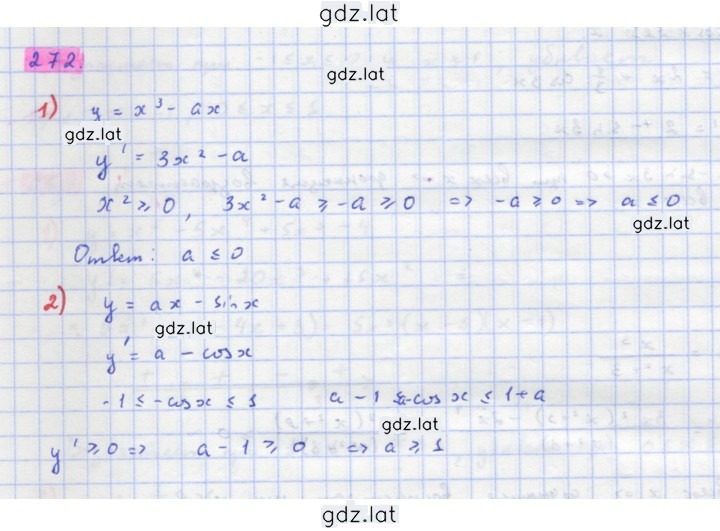 gdz.lat
272.
gdz.lat
1) y = x³ - ax
gdz.lat
y' = 3x² - a
x² ≥ 0, 3x² - a ≥ -a ≥ 0 => -a ≥ 0 => a ≤ 0
gdz.lat
Ответ: a ≤ 0
2) y = ax - sin x
gdz.lat
y' = a - cos x
-1 ≤ -cos x ≤ 1 a - 1 ≤ a - cos x ≤ 1 + a
gdz.lat
y' ≥ 0 => a - 1 ≥ 0 => a ≥ 1
gdz.lat